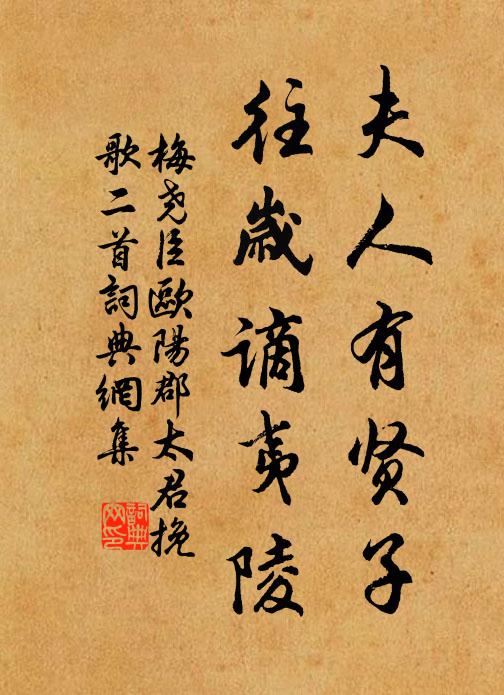 夫人有贤子
往岁谪夷陵
梅尧臣歐陽郡太君挽
歌二首詞典網集
詞典
网印